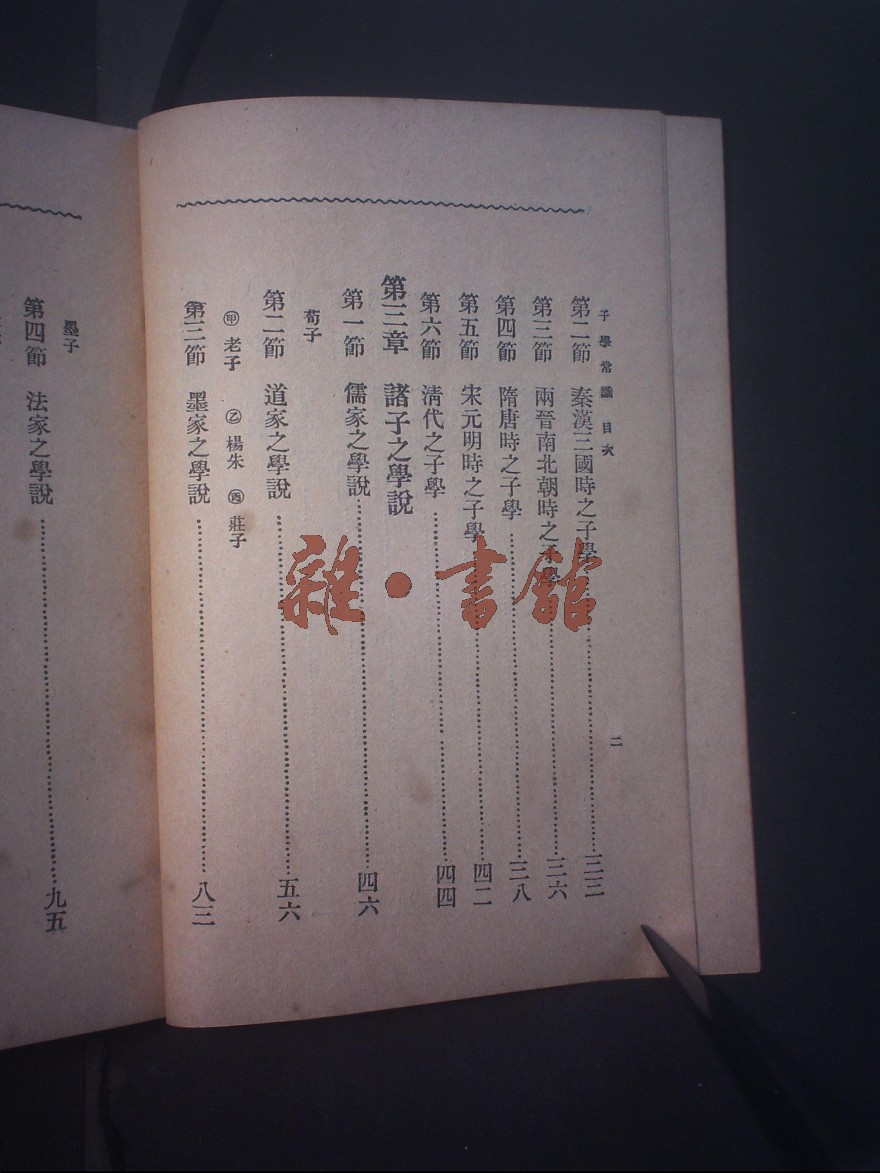 子學常識 目次
二
第二節 秦漢三國時之子學……三三
第三節 兩晉南北朝時之子學……三六
第四節 隋唐時之子學……三八
第五節 宋元明時之子學……四二
第六節 清代之子學……四四
第三章 諸子之學說
第一節 儒家之學說……四六
荀子
第二節 道家之學說……五六
㊙甲 老子 乙 楊朱 丙 莊子
第三節 墨家之學說……八三
墨子
第四節 法家之學說……九五
雜·書館